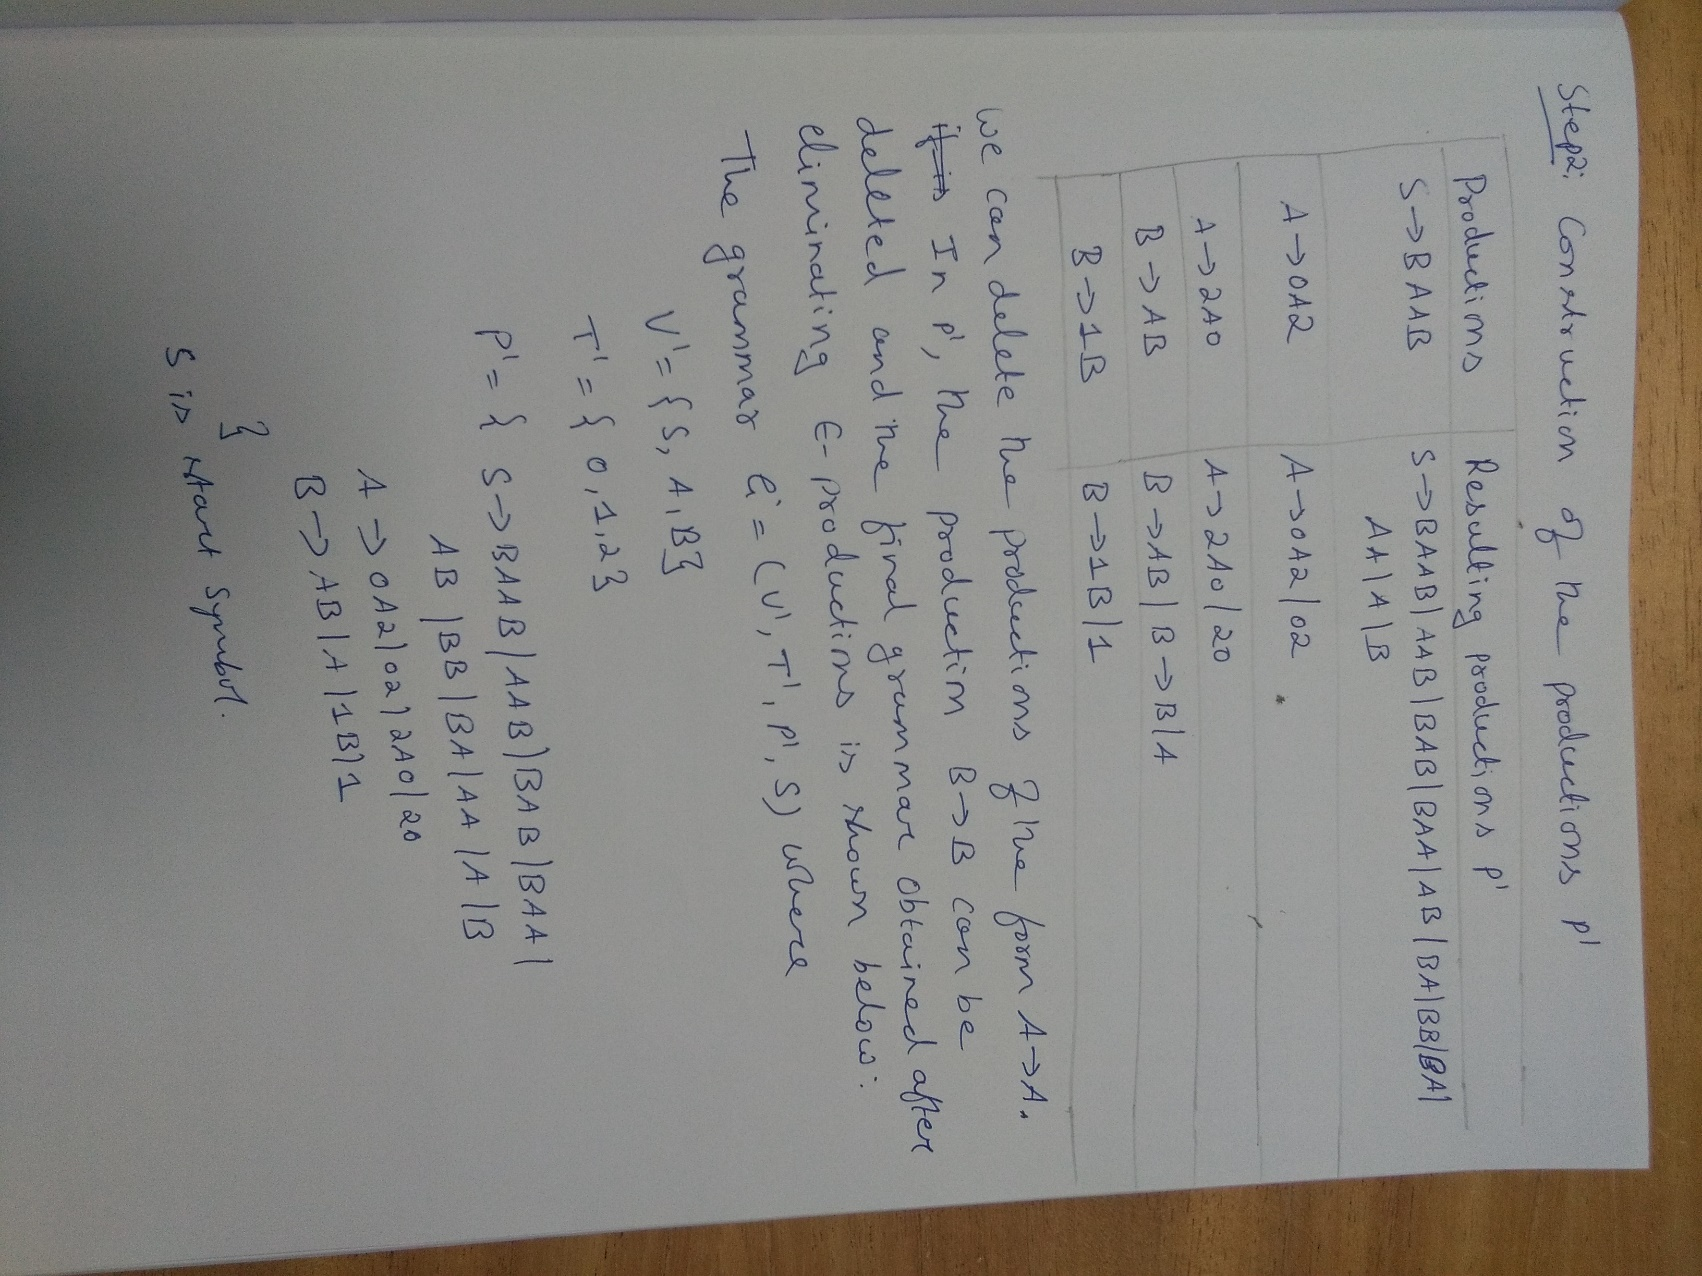 Step2: Construction of the productions P'
Productions Resulting productions P'
S→BAAB S→BAAB|AAB|BAB|BAA|AB|BA|BB|BA|
AA|A|B
A→0A2 A→0A2|02
A→2A0 A→2A0|20
B→AB B→AB|B→B|A
B→1B B→1B|1
we can delete the productions of the form A→A.
In P', the production B→B can be
deleted and the final grammar obtained after
eliminating ε-productions is shown below:
The grammar G' = (V', T', P', S) where
V' = {S, A, B}
T' = {0, 1, 2}
P' = { S→BAAB|AAB|BAB|BAA|
AB|BB|BA|AA|A|B
A→0A2|02|2A0|20
B→AB|A|1B|1
}
S is start Symbol.